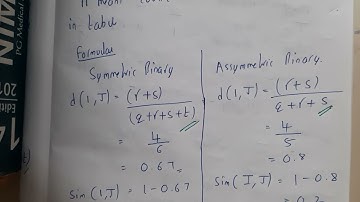 in tabul
Formulas
Symmetric Binary
d(1,J) = (r+s)
(q+r+s+t)
= 4
6
= 0.67
Sim(1,J) = 1-0.67
Assymetric Binary.
d(1,J) = (r+s)
q+r+s
= 4
5
= 0.8
Sim(I,J) = 1-0.8
PG Medical
Edition
14